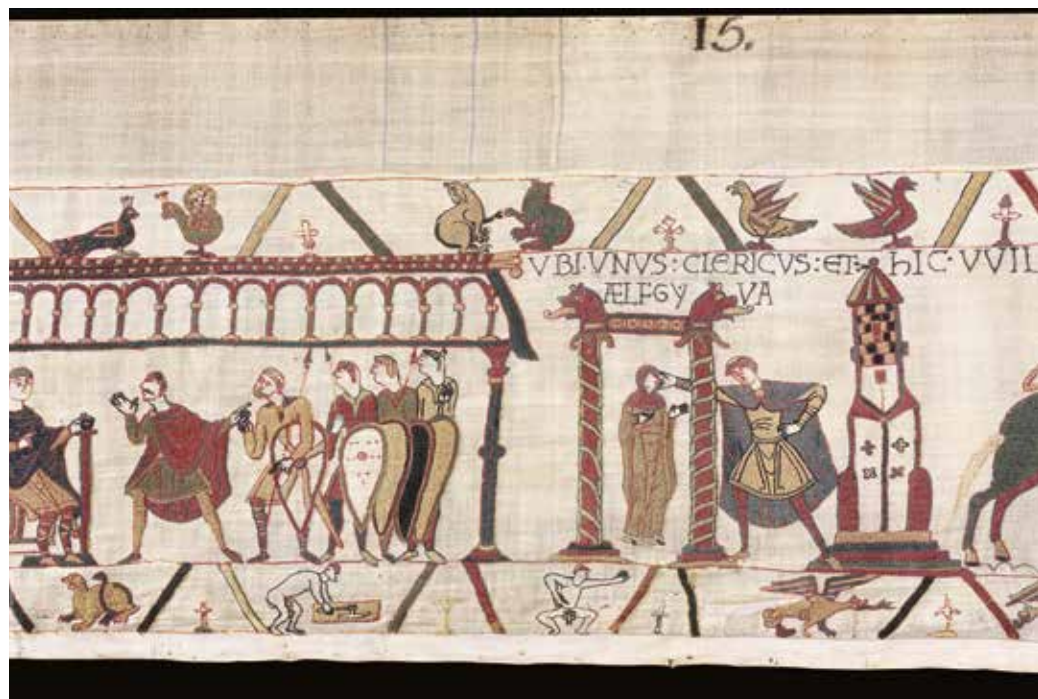 15.
VBI·VNVS:CLERICVS:ET· hIC·VVIL
ÆLFGYVA